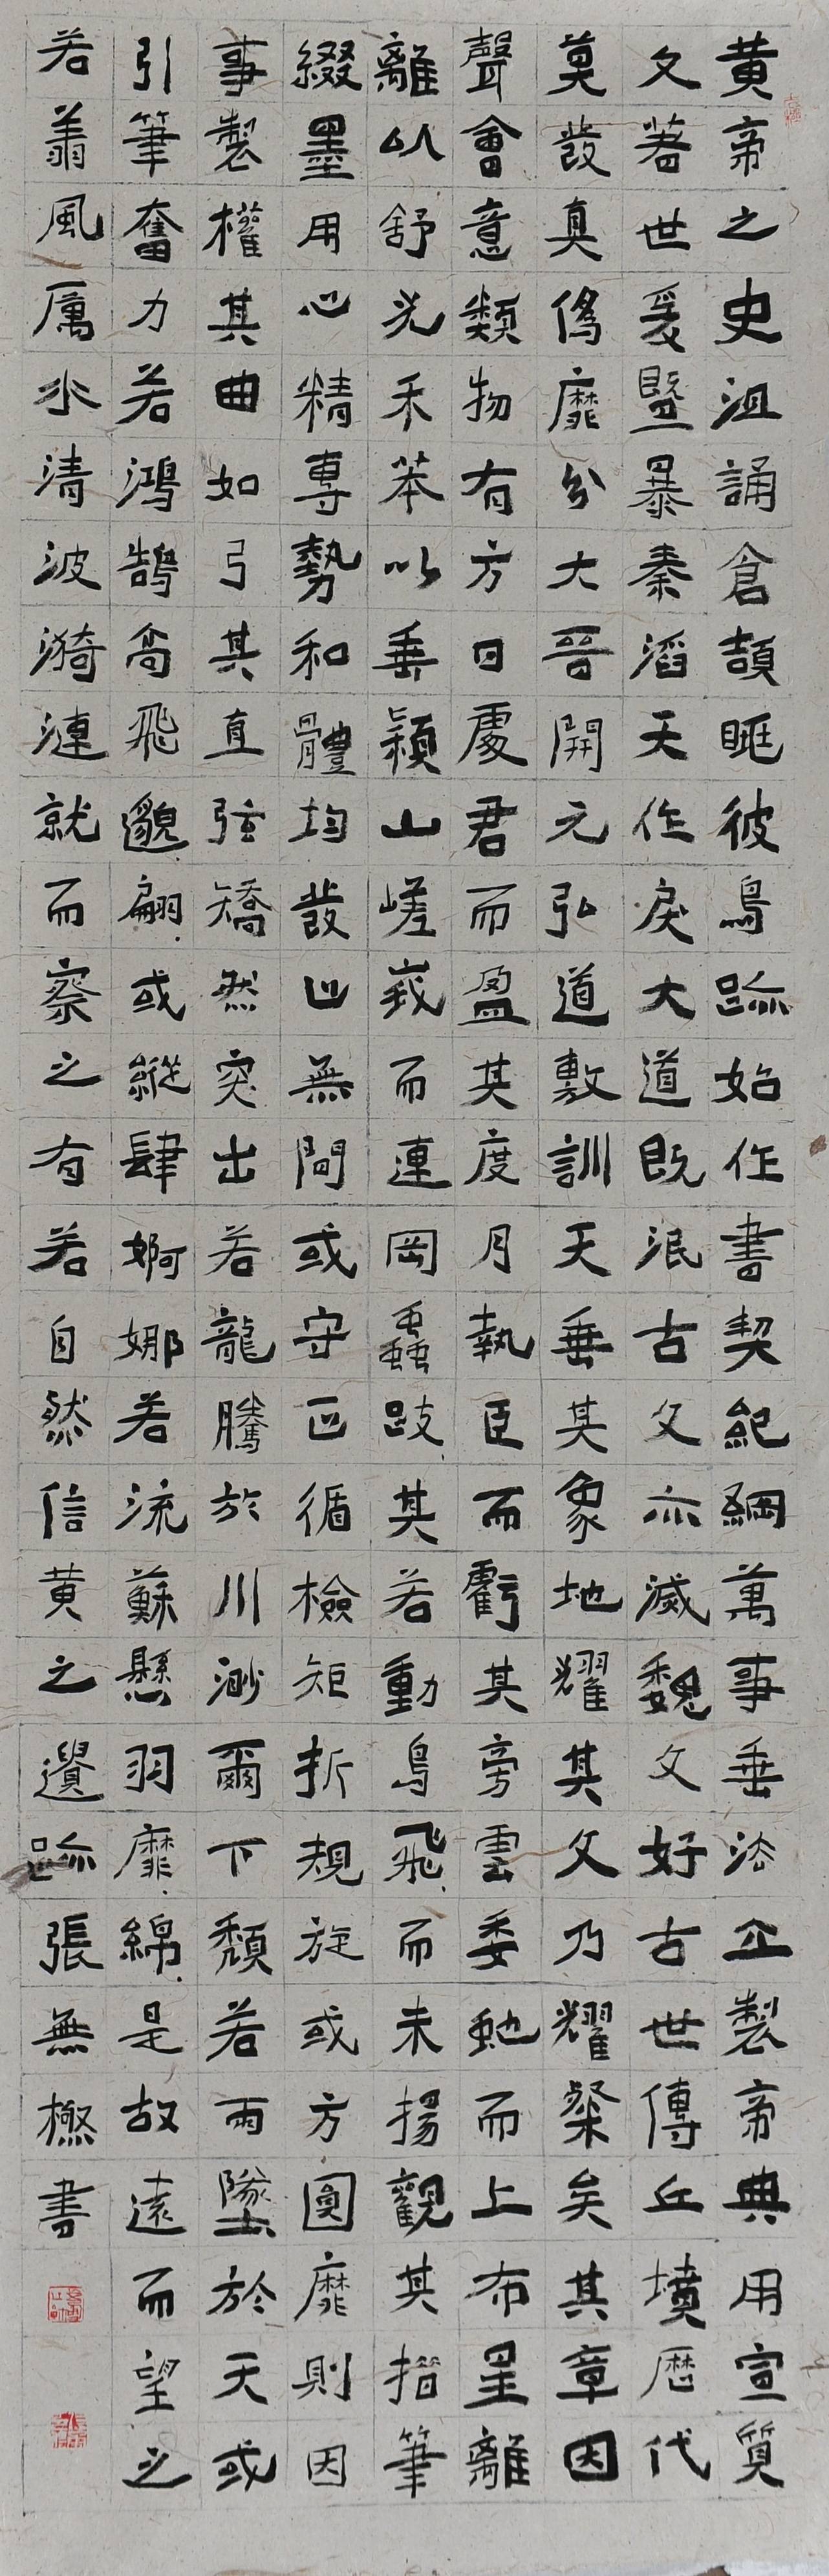 黃帝之史沮誦倉頡眺彼鳥跡始作書契紀綱萬事垂法立製帝典用宣質
文著世爰暨暴秦滔天作戾大道既泯古文亦滅魏文好古世傳丘墳歷代
莫發真偽靡分大晉開元弘道敷訓天垂其象地耀其文乃耀粲矣其章因
聲會意類物有方日處君而盈其度月執臣而虧其旁雲委虵而上布星離
離以舒光禾苯以垂穎山嵯峩而連岡蟲跂其若動鳥飛而未揚觀其措筆
綴墨用心精專勢和體均發止無間或守正循檢矩折規旋或方圓靡則因
事製權其曲如弓其直弦矯然突出若龍騰於川渺爾下頹若雨墜於天或
引筆奮力若鴻鵠高飛邈翩或縱肆婀娜若流蘇懸羽靡綿是故遠而望之
若翕風厲水清波漪漣就而察之有若自然信黃之遺跡張無極書